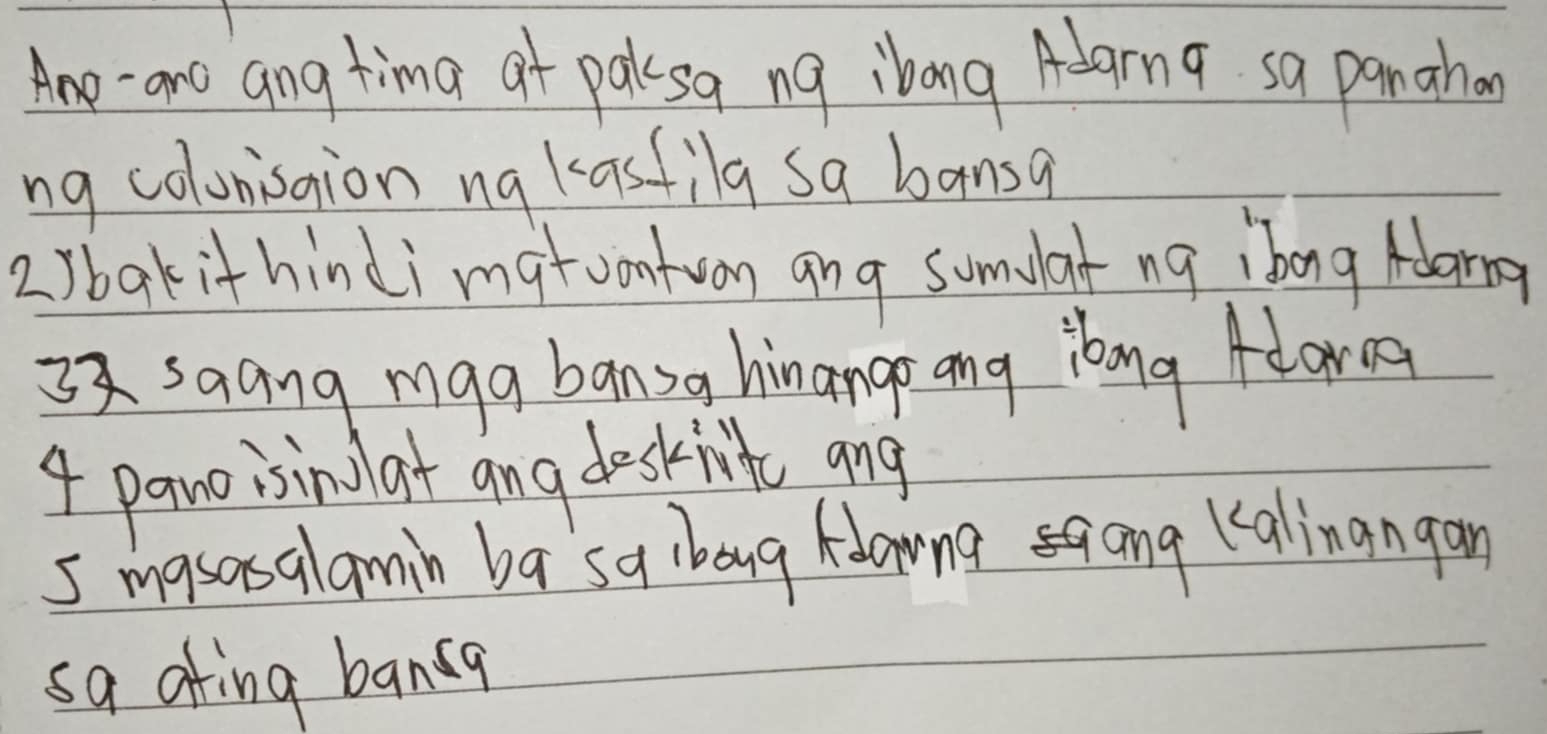 Ano-ano ang tima at paksa ng ibong Adarna sa panahon
ng colonisaion ng kasfila sa bansa
2) bakit hindi matuontuon ang sumulat ng ibong Adarna
3 saang mga bansa hinango ang ibong Adarna
4 pano isinulat ang ang
5 masasalamin ba sa ibong Adarna ang kalinangan
sa ating bansa